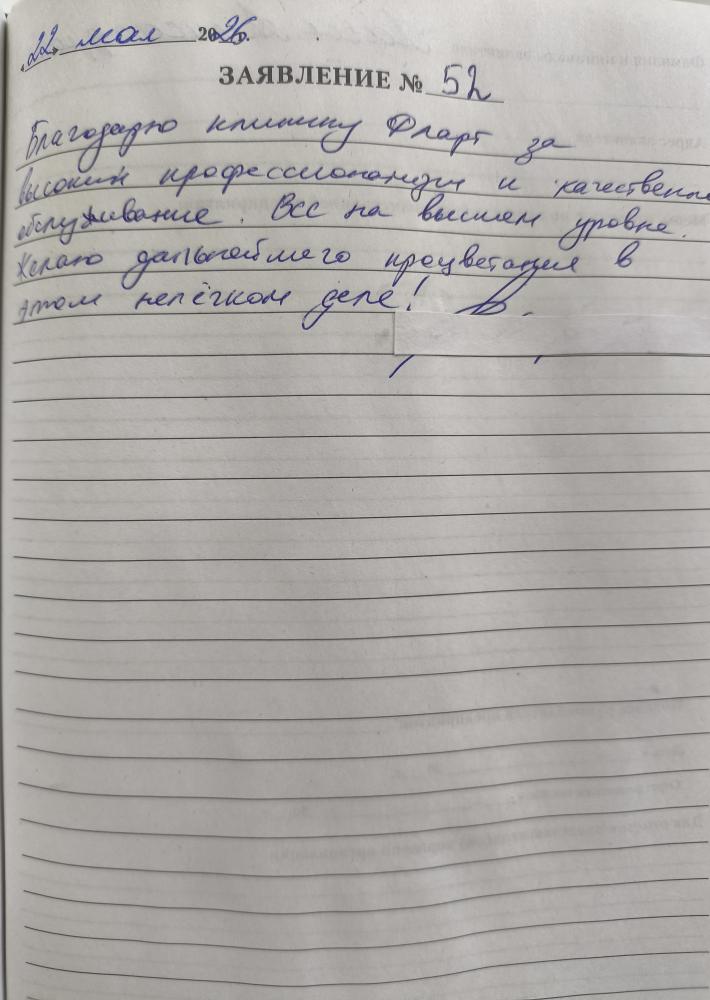 22 мая 2026г.
ЗАЯВЛЕНИЕ № 52
Благодарю клинику Фларт за
высокий профессионализм и качественно
обслуживание. Всё на высшем уровне.
Желаю дальнейшего процветания в
этом нелёгком деле!